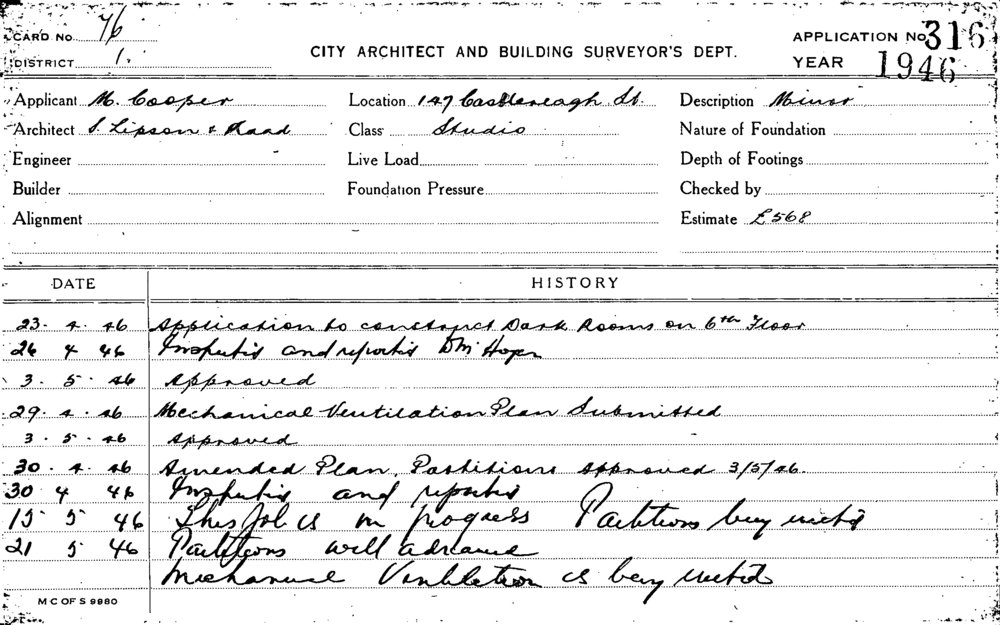 CARD No. 76
CITY ARCHITECT AND BUILDING SURVEYOR'S DEPT.
APPLICATION No 316
DISTRICT 1.
YEAR 1946
Applicant M. Cooper Location 147 Castlereagh St. Description Minor
Architect S. Lipson & Kaad Class Studio Nature of Foundation
Engineer Live Load Depth of Footings
Builder Foundation Pressure Checked by
Alignment Estimate £568
DATE HISTORY
23. 4. 46 Application to construct Dark Rooms on 6th Floor
26 4 46 Inspected and reported
3. 5. 46 Approved
29. 4. 46 Mechanical Ventilation Plan Submitted
3. 5. 46 Approved
30. 4. 46 Amended Plan, Partitions approved 3/5/46.
30 4 46 Inspected and reported
15 5 46 This Job is in progress Partitions being erected
21 5 46 Partitions well advanced
Mechanical Ventilation is being erected
M C OF S 9980